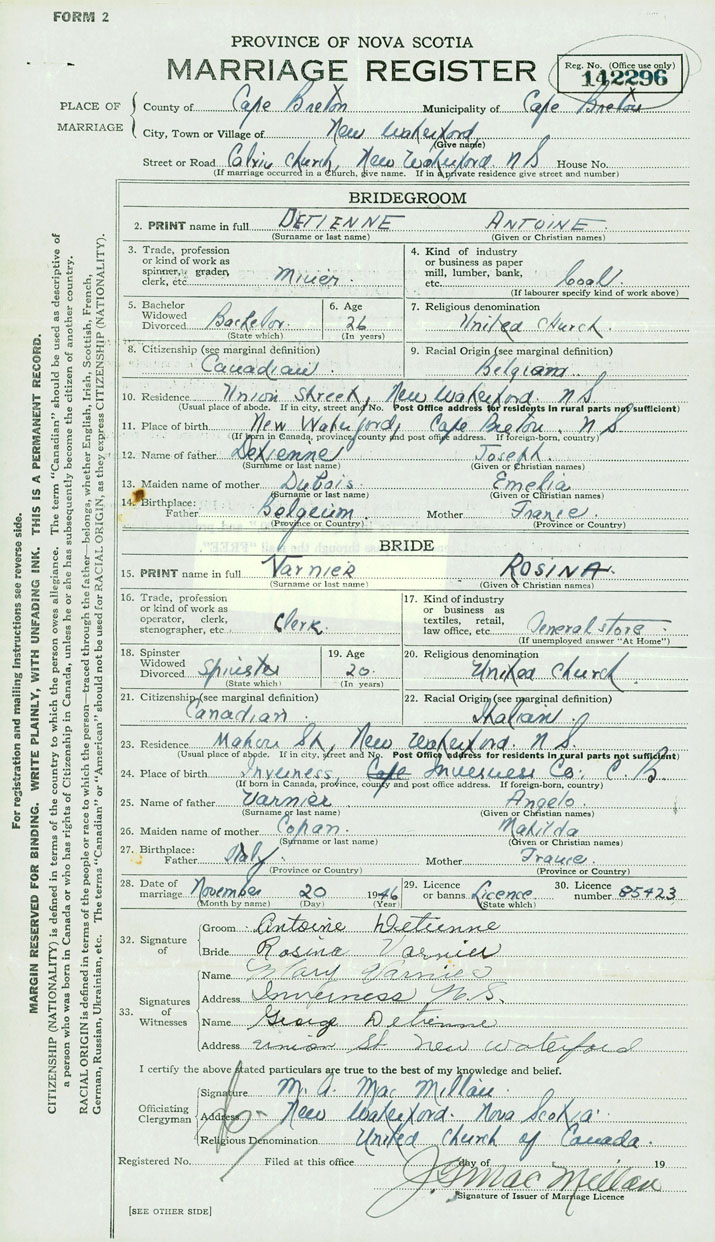 FORM 2
PROVINCE OF NOVA SCOTIA
MARRIAGE REGISTER
Reg. No. (Office use only)
142296
PLACE OF MARRIAGE
County of Cape Breton Municipality of Cape Breton
City, Town or Village of New Waterford
(Give name)
Street or Road Calvin Church, New Waterford. N S House No.
(If marriage occurred in a Church, give name. If in a private residence give street and number)
BRIDEGROOM
2. PRINT name in full DETIENNE ANTOINE
(Surname or last name) (Given or Christian names)
3. Trade, profession or kind of work as spinner, grader, clerk, etc. Miner.
4. Kind of industry or business as paper mill, lumber, bank, etc. Coal
(If labourer specify kind of work above)
5. Bachelor Widowed Divorced Bachelor.
(State which)
6. Age 26
(In years)
7. Religious denomination United Church.
8. Citizenship (see marginal definition) Canadian.
9. Racial Origin (see marginal definition) Belgian.
10. Residence Union Street, New Waterford. N S.
(Usual place of abode. If in city, street and No. Post Office address for residents in rural parts not sufficient)
11. Place of birth New Waterford, Cape Breton. N S
(If born in Canada, province, county and post office address. If foreign-born, country)
12. Name of father Detienne Joseph.
(Surname or last name) (Given or Christian names)
13. Maiden name of mother Dubois Emelia
(Surname or last name) (Given or Christian names)
14. Birthplace: Father Belgium. Mother France.
(Province or Country) (Province or Country)
BRIDE
15. PRINT name in full VARNIER ROSINA.
(Surname or last name) (Given or Christian names)
16. Trade, profession or kind of work as operator, clerk, stenographer, etc. Clerk.
17. Kind of industry or business as textiles, retail, law office, etc. General store
(If unemployed answer "At Home")
18. Spinster Widowed Divorced Spinster
(State which)
19. Age 20.
(In years)
20. Religious denomination United Church.
21. Citizenship (see marginal definition) Canadian.
22. Racial Origin (see marginal definition) Italian.
23. Residence Mahou St, New Waterford. N S.
(Usual place of abode. If in city, street and No. Post Office address for residents in rural parts not sufficient)
24. Place of birth Inverness, Cape Inverness Co. C. B.
(If born in Canada, province, county and post office address. If foreign-born, country)
25. Name of father Varnier Angelo.
(Surname or last name) (Given or Christian names)
26. Maiden name of mother Copan. Mathilda
(Surname or last name) (Given or Christian names)
27. Birthplace: Father Italy. Mother France.
(Province or Country) (Province or Country)
28. Date of marriage November 20 1946
(Month by name) (Day) (Year)
29. Licence or banns Licence.
(State which)
30. Licence number 85423
32. Signature of
Groom Antoine Detienne
Bride Rosina Varnier
33. Signatures of Witnesses
Name Mary Varnier
Address Inverness N.S.
Name George Detienne
Address Union St New Waterford
I certify the above stated particulars are true to the best of my knowledge and belief.
Officiating Clergyman
Signature M. A. MacMillan.
Address New Waterford. Nova Scotia.
Religious Denomination United Church of Canada.
Registered No. Filed at this office day of 19
MacMillan
Signature of Issuer of Marriage Licence
[SEE OTHER SIDE]
For registration and mailing instructions see reverse side.
MARGIN RESERVED FOR BINDING. WRITE PLAINLY, WITH UNFADING INK. THIS IS A PERMANENT RECORD.
CITIZENSHIP (NATIONALITY) is defined in terms of the country to which the person owes allegiance. The term "Canadian" should be used as descriptive of
a person who was born in Canada or who has rights of Citizenship in Canada, unless he or she has subsequently become the citizen of another country.
RACIAL ORIGIN is defined in terms of the people or race to which the person—traced through the father—belongs, whether English, Irish, Scottish, French,
German, Russian, Ukrainian, etc. The terms "Canadian" or "American" should not be used for RACIAL ORIGIN, as they express CITIZENSHIP (NATIONALITY).